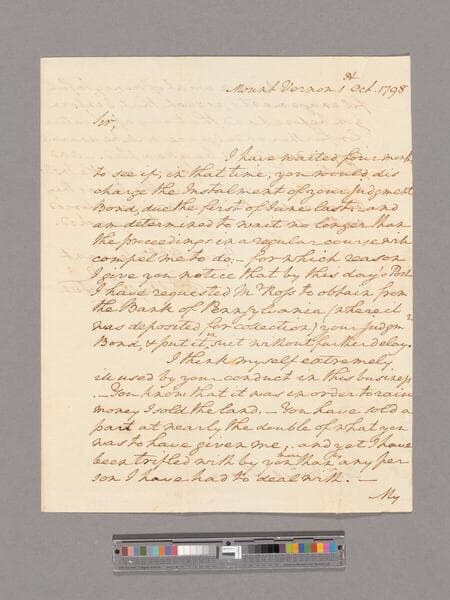 Mount Vernon 1st Oct. 1798
Sir,
I have waited four months
to see if, in that time, you would dis
charge the Instalment of your Judgment
Bond, due the first of June last; and
am determined to wait no longer than
the proceedings in a regular course will
compel me to do;— for which reason
I give you notice that by this day's Post
I have requested Mr Ross to obtain from
the Bank of Pennsylvania (where it
was deposited for colection) your Judgmt
Bond, & put it in suit without further delay.
I think myself extremely
ill used by your conduct in this business
.—You know that it was in order to raise
money I sold the land.—You have sold a
part at nearly the double of what you
was to have given me;. and yet I have
been trifled with by you more than by any per
son I have had to deal with.—
My